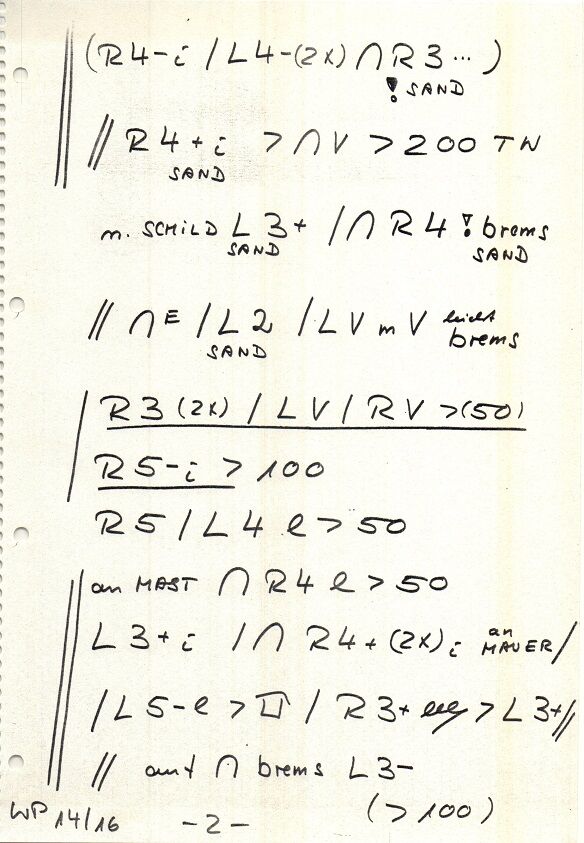 (R4-i / L4-(2x) ∩ R3 ... )
! SAND
// R4+i > ∩ V > 200 TW
SAND
n. SCHILD L3+ / ∩ R4 ! brems
SAND SAND
// ∩ E / L2 / LV m V leicht brems
SAND
R3 (2x) / LV / RV > (50)
R5-i > 100
R5 / L4 l > 50
an MAST ∩ R4 l > 50
L3+i / ∩ R4+(2x) i an MAUER /
/ L5-l > / R3+ > L3+ //
// ∩ brems L3-
(> 100)
WP 14/16 -2-